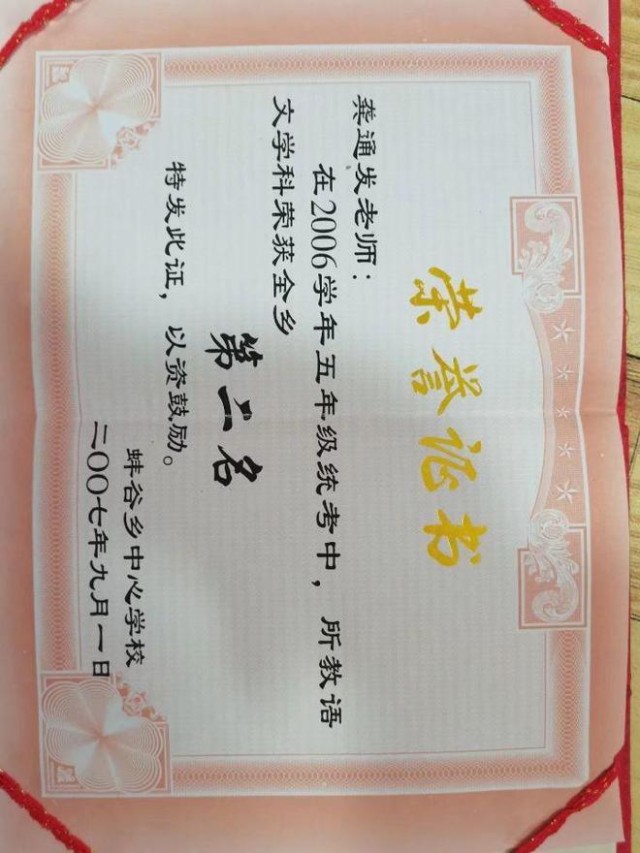 荣誉证书
龚通发老师：
在2006学年五年级统考中，所教语
文学科荣获全乡
第二名
特发此证，以资鼓励。
蚌谷乡中心学校
二〇〇七年九月一日